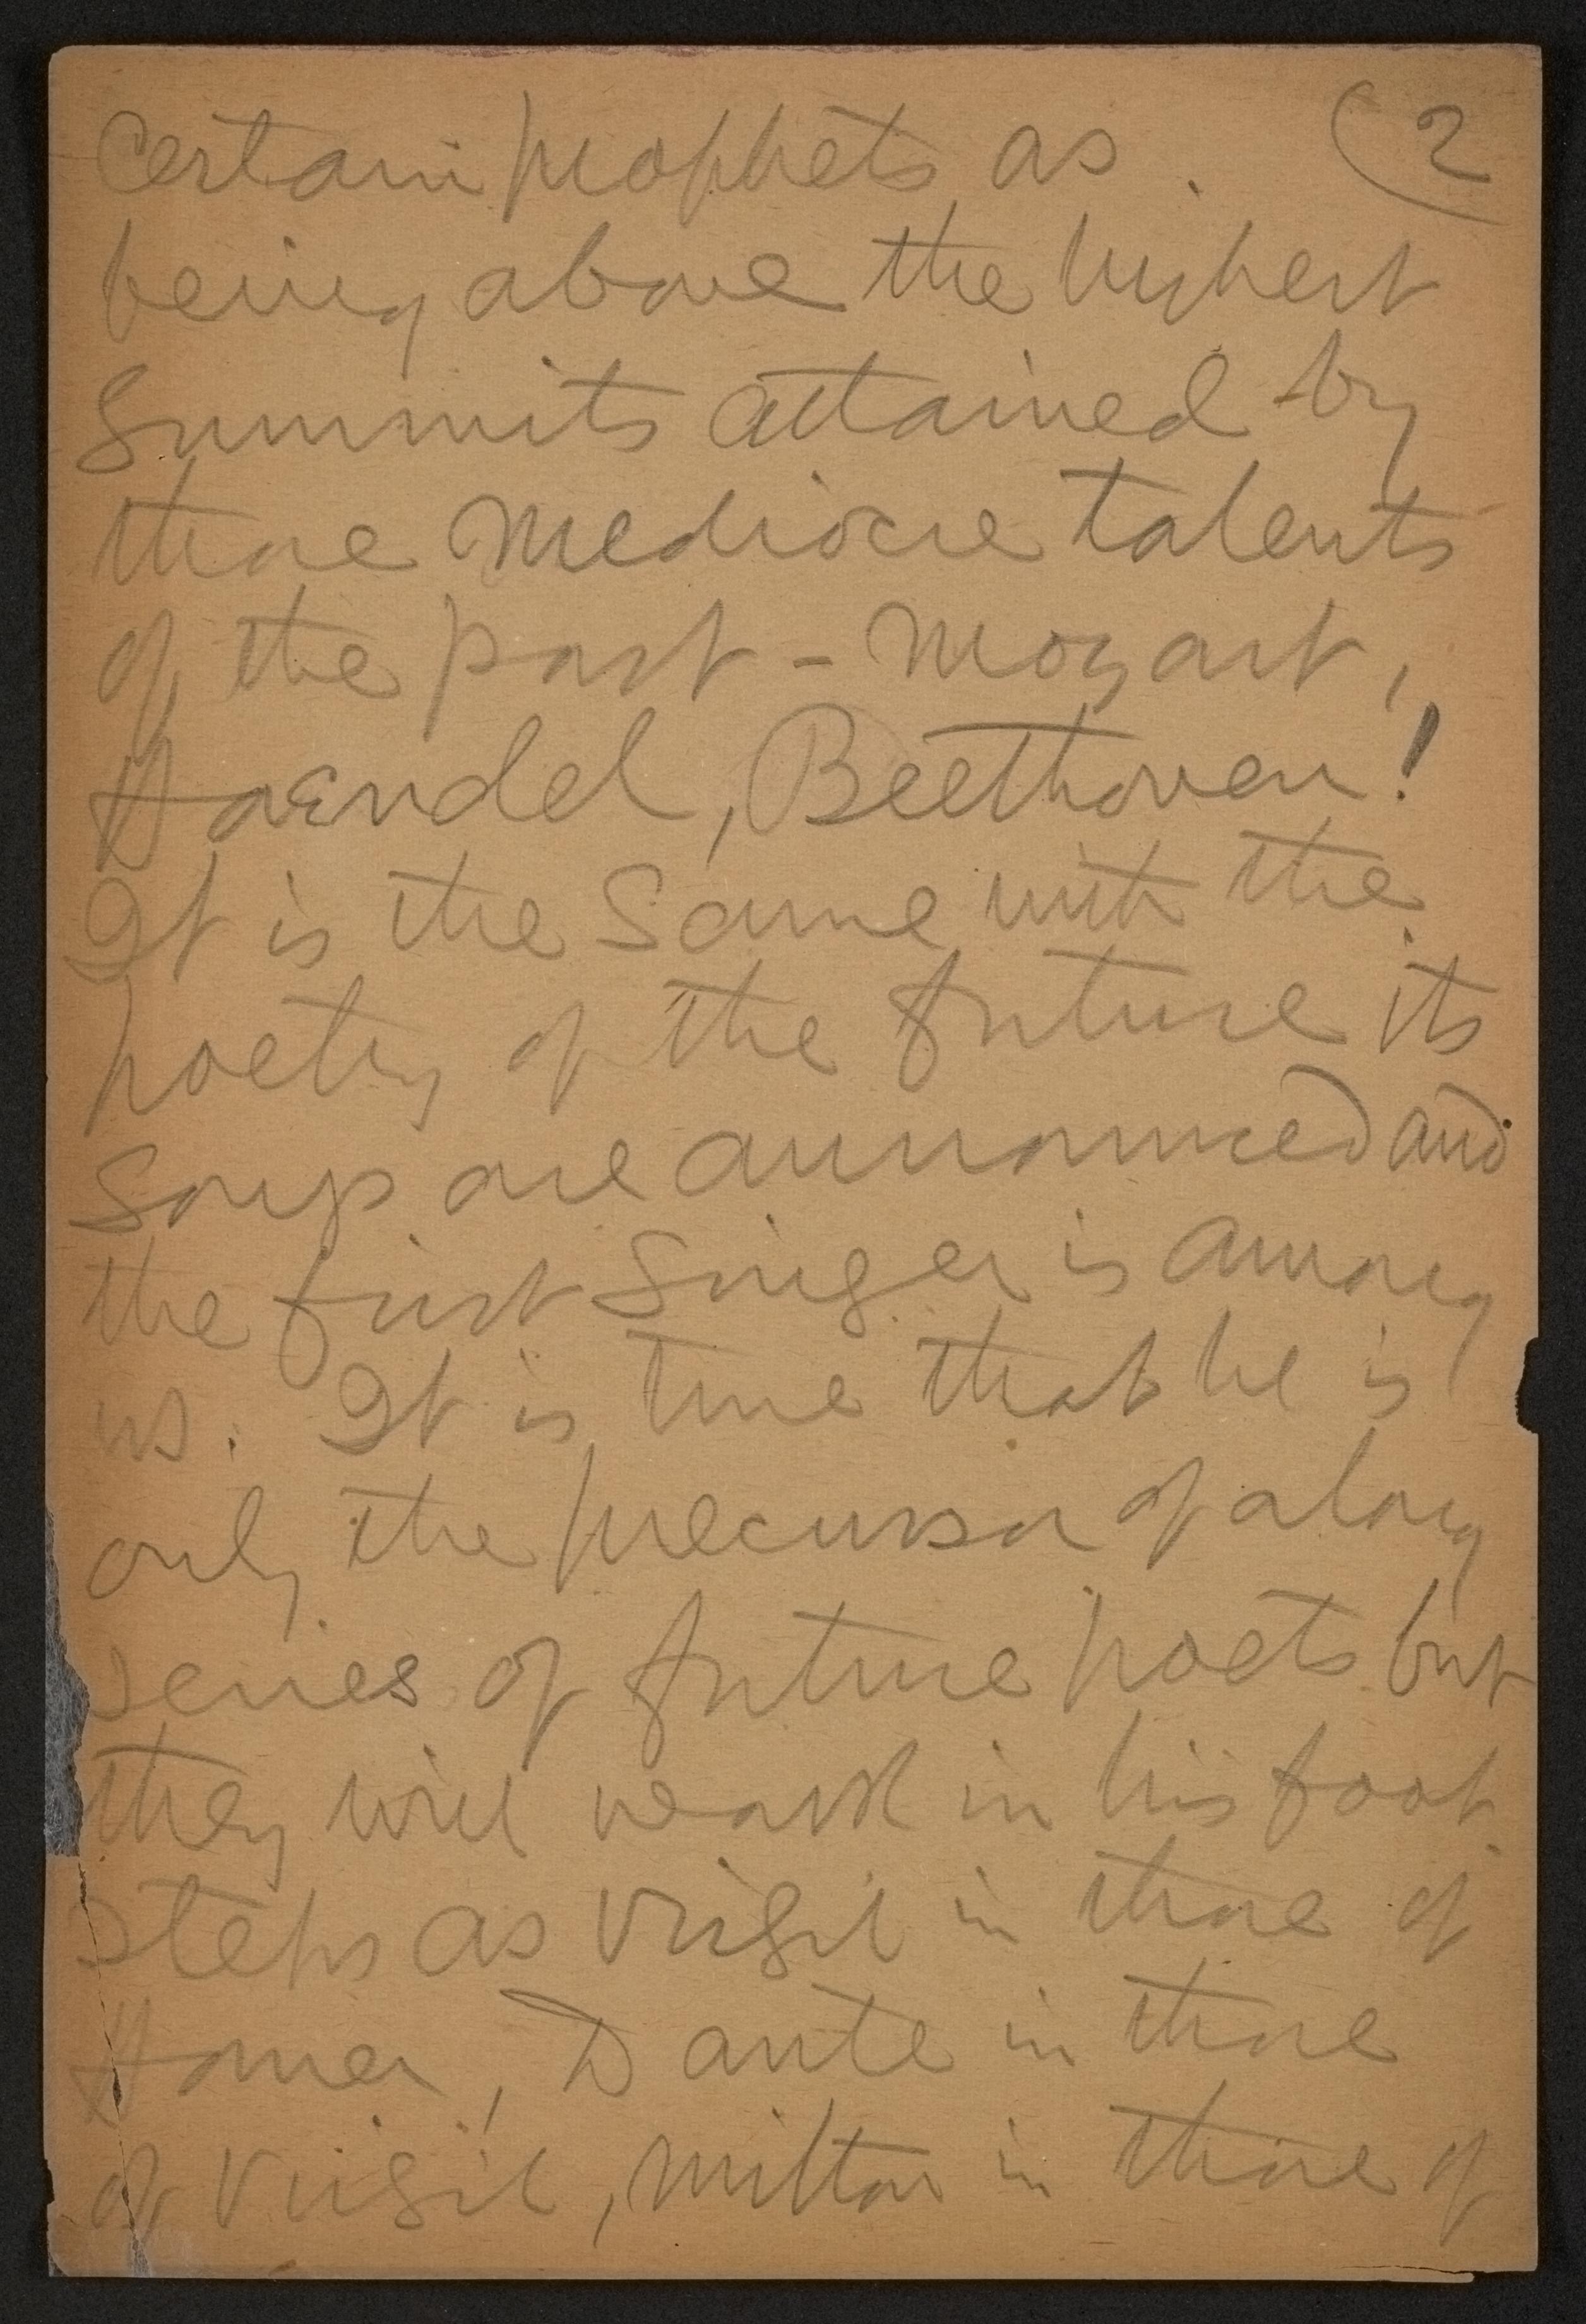 certain prophets as . (2
being above the highest
Summits attained by
those mediocre talents
of the past - Mozart,
Haendel, Beethoven!
It is the same with the
poetry of the future its
songs are announced and
the first Singer is among
us. It is true that he is
only the precursor of a long
series of future poets but
they will walk in his foot
steps as Virgil in those of
Homer, Dante in those
of Virgil, Milton in those of